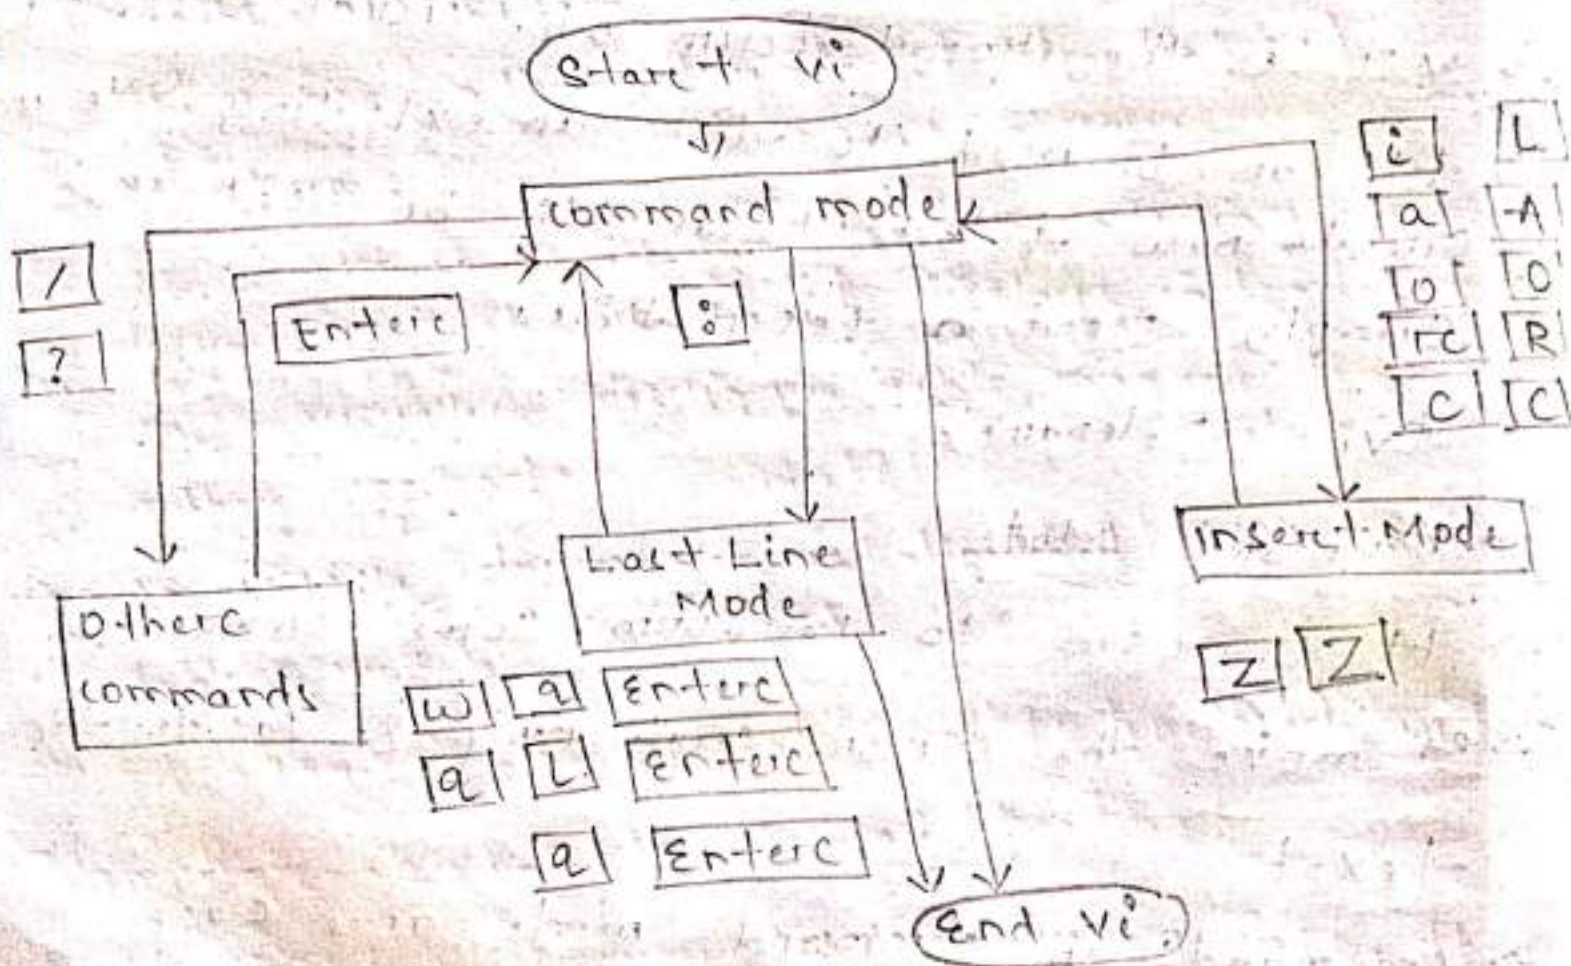 Start vi
command mode
i L
a A
/
o O
Enter
:
r R
?
c C
Last Line
Mode
insert Mode
Other
commands
Z Z
w q Enter
q L Enter
q Enter
End vi